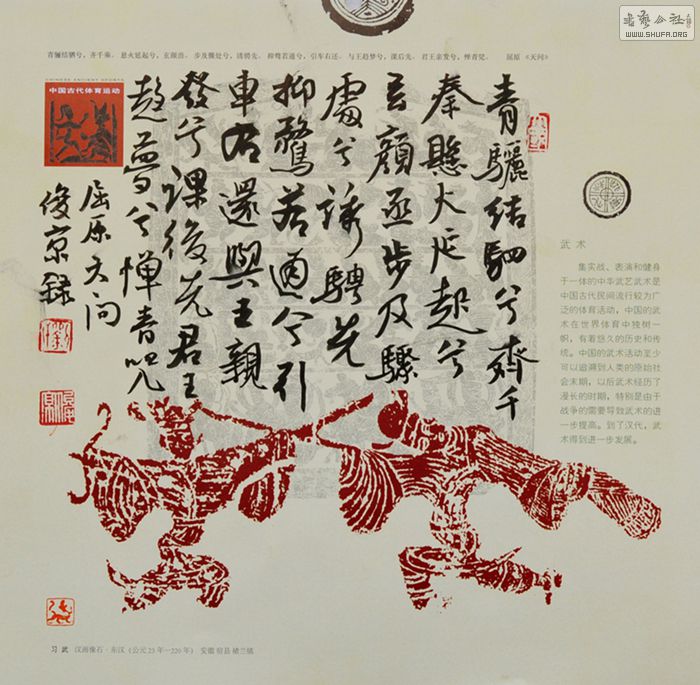 書藝公社
WWW.SHUFA.ORG
青骊结驷兮，齐千乘。悬火延起兮，玄颜蒸。步及骤处兮，诱骋先。抑骛若通兮，引车右还。与王趋梦兮，课后先。君王亲发兮，惮青兕。 屈原《天问》
CHINESE ANCIENT SPORTS
中国古代体育运动
青驪結駟兮齊千
乘懸火延起兮
玄顏烝步及驟
處兮誘騁先
抑騖若通兮引
車右還與王親
發兮課後先君王
趨夢兮憚青兕
屈原天问
俊京録
武术
集实战、表演和健身
于一体的中华武艺武术是
中国古代民间流行较为广
泛的体育活动，中国的武
术在世界体育中独树一
帜，有着悠久的历史和传
统。中国的武术活动至少
可以追溯到人类的原始社
会末期，以后武术经历了
漫长的时期，特别是由于
战争的需要导致武术的进
一步提高。到了汉代，武
术得到进一步发展。
习武 汉画像石·东汉（公元25年—220年） 安徽宿县褚兰镇